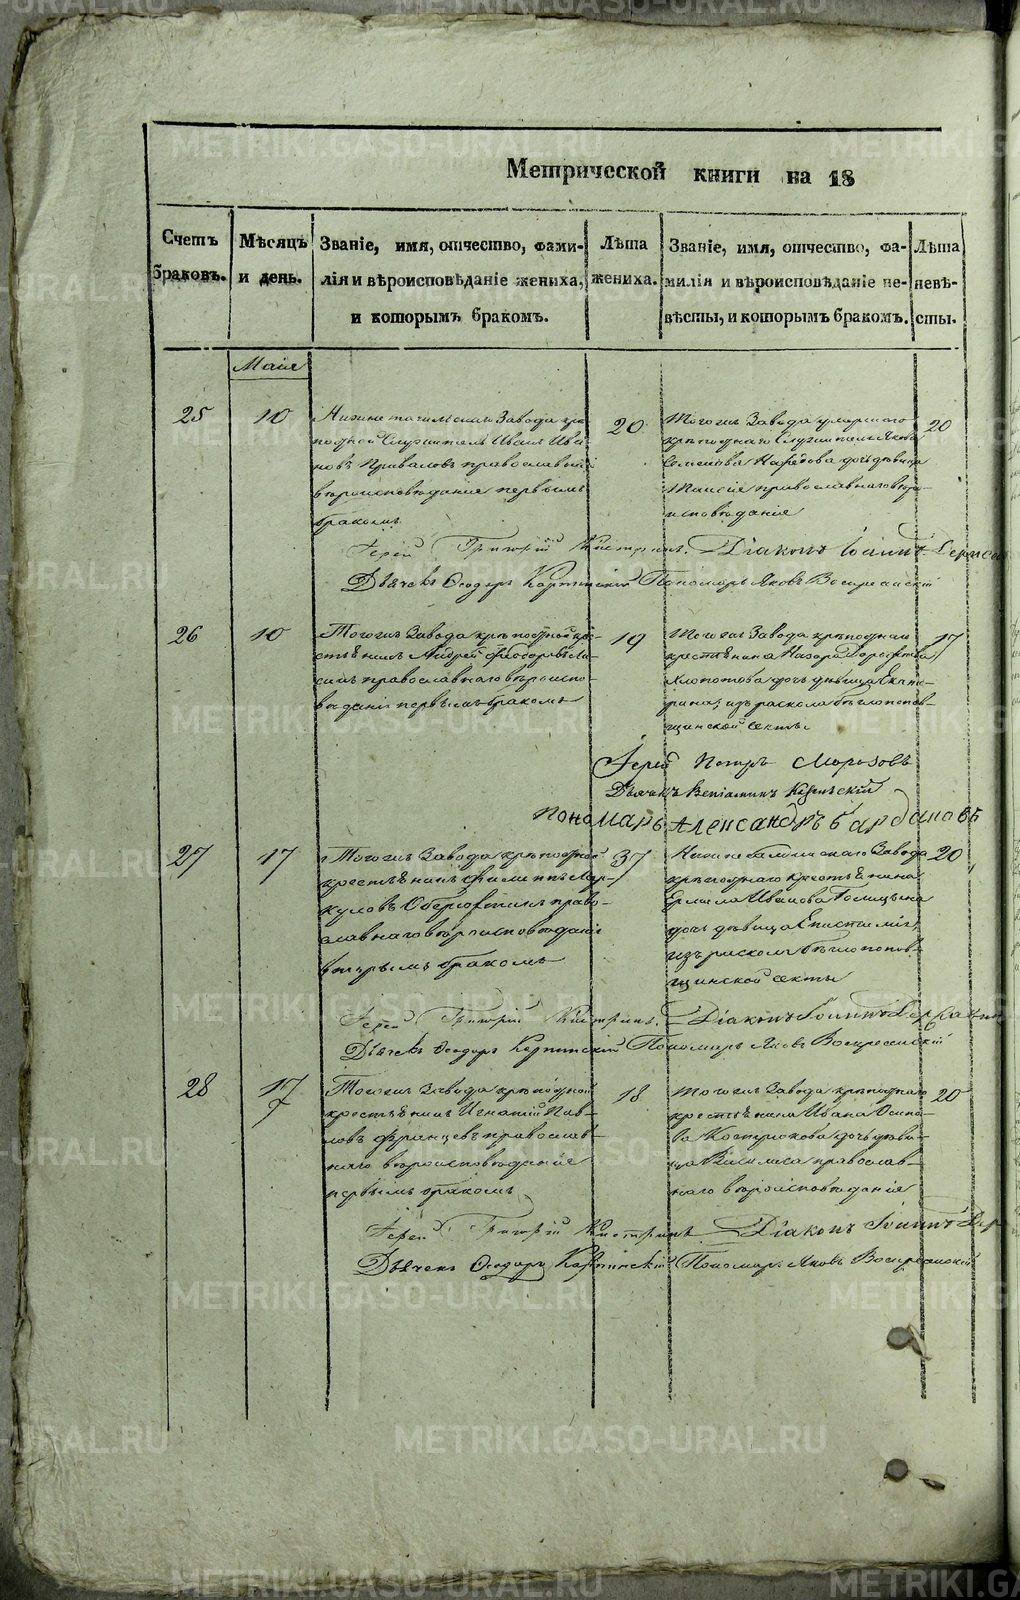 Метрической книги на 18
Счетъ браковъ.
Мѣсяцъ и день.
Званіе, имя, отчество, фами-
лія и вѣроисповѣданіе жениха,
и которымъ бракомъ.
Лѣта жениха.
Званіе, имя, отчество, фа-
милія и вѣроисповѣданіе не-
вѣсты, и которымъ бракомъ.
Лѣта невѣ-
сты.
Маія
25
10
Нижне тагильскаго Завода крѣ
постной Служитель Иванъ Ива
новъ Приваловъ православнаго
вѣроисповѣданія первымъ
бракомъ
20
Тогожъ Завода умершаго
крѣпостнаго Служителя Якова
дочь дѣвица
Таисія православнаго вѣро-
исповѣданія
20
Іерей Григорій Діаконъ Іоаннъ
Дьячекъ Ѳеодоръ Пономарь Яковъ Воскресенскій
26
10
Тогожъ Завода крѣпостной кре-
стьянинъ Андрей Ѳеодоровъ
православнаго вѣроиспо-
веданія первымъ бракомъ
19
Тогожъ Завода крѣпостнаго
крестьянина Назара
дочь дѣвица Екате-
рина, изъ раскола бѣглопопов-
щинской секты
17
Іерей Петръ Морозовъ
Дьячекъ Веніаминъ
Пономарь Александръ Бардановъ
27
17
Тогожъ Завода крѣпостной
крестьянинъ Филиппъ Мер-
куловъ право-
славнаго вѣроисповѣданія
вторымъ бракомъ
37
Завода
крѣпостнаго крестьянина
Ермила Иванова Голицына
дочь дѣвица Епистимія,
изъ раскола бѣглопопов-
щинской секты
20
Іерей Григорій Діаконъ Іоаннъ
Дьячекъ Ѳеодоръ Пономарь Яковъ Воскресенскій
28
17
Тогожъ Завода крѣпостной
крестьянинъ Игнатій Пав-
ловъ Францевъ православ-
наго вѣроисповѣданія
первымъ бракомъ
18
Тогожъ Завода крѣпостнаго
крестьянина Ивана Осипо-
ва Кострюкова дочь дѣви-
ца Василиса православ-
наго вѣроисповѣданія
20
Іерей Григорій Діаконъ Іоаннъ
Дьячекъ Ѳеодоръ Пономарь Яковъ Воскресенскій
METRIKI.GASO-URAL.RU